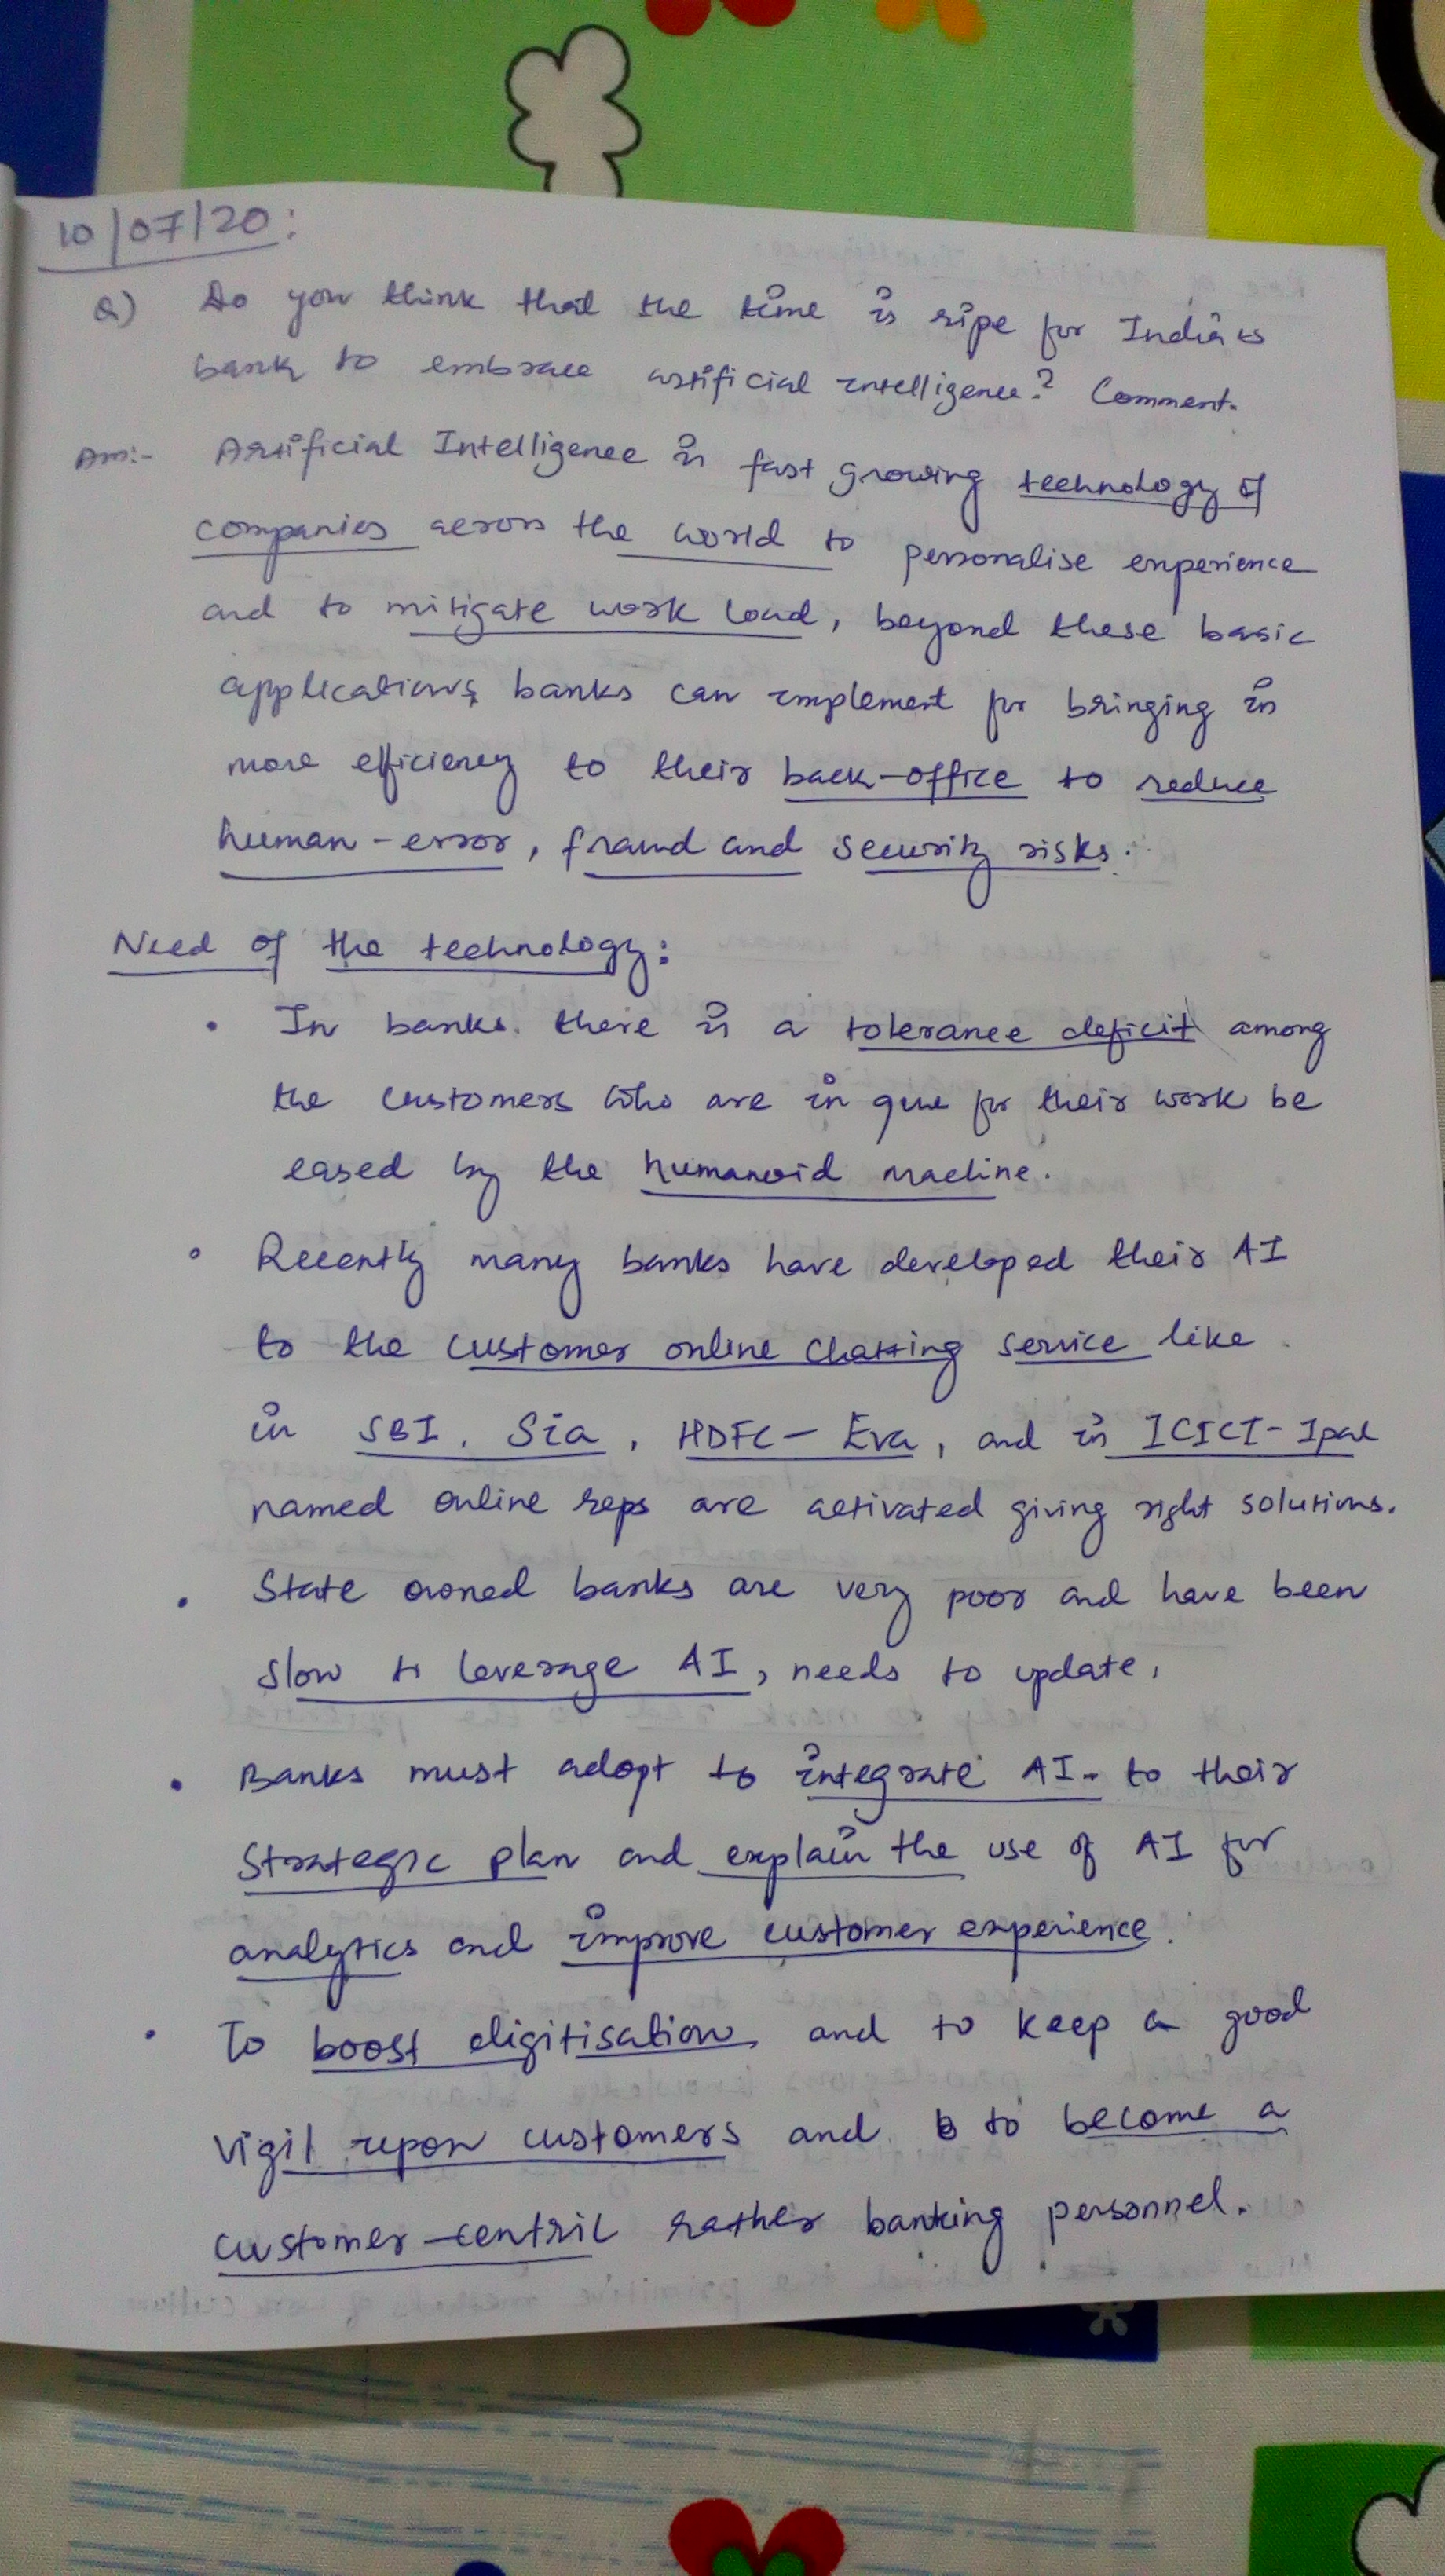 10/07/20:
Q) Do you think that the time is ripe for India's
bank to embrace artificial intelligence? Comment.
Ans:- Artificial Intelligence is fast growing technology of
companies across the world to personalise experience
and to mitigate work load, beyond these basic
applications, banks can implement for bringing in
more efficiency to their back-office to reduce
human-error, fraud and security risks.
Need of the technology:
• In banks. there is a tolerance deficit among
the customers who are in que for their work be
eased by the humanoid machine.
• Recently many banks have developed their AI
to the customer online chatting service like
in SBI. Sia, HDFC- Eva, and in ICICI-Ipal
named online reps are activated giving right solutions.
• State owned banks are very poor and have been
slow to leverage AI, needs to update.
• Banks must adopt to integrate AI. to their
strategic plan and explain the use of AI for
analytics and improve customer experience.
• To boost digitisation, and to keep a good
vigil upon customers and to become a
customer-centric rather banking personnel.